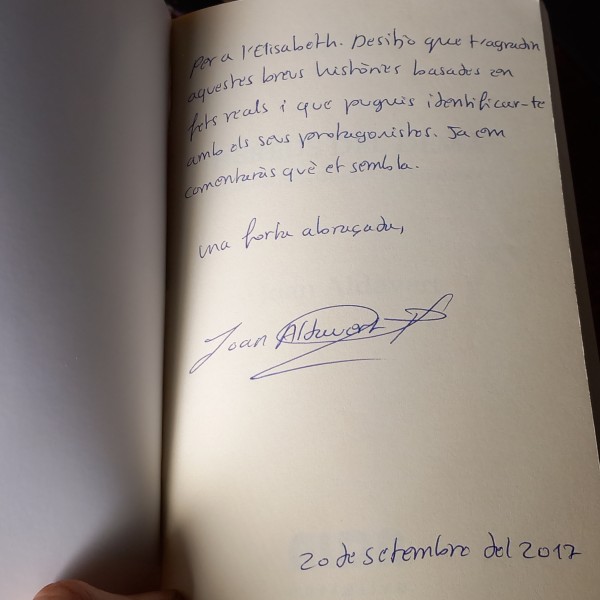 Per a l'Elisabeth. Desitjo que t'agradin
aquestes breus històries basades en
fets reals i que puguis identificar-te
amb els seus protagonistes. Ja em
comentaràs què et sembla.
una forta abraçada,
Joan
20 de setembre del 2017